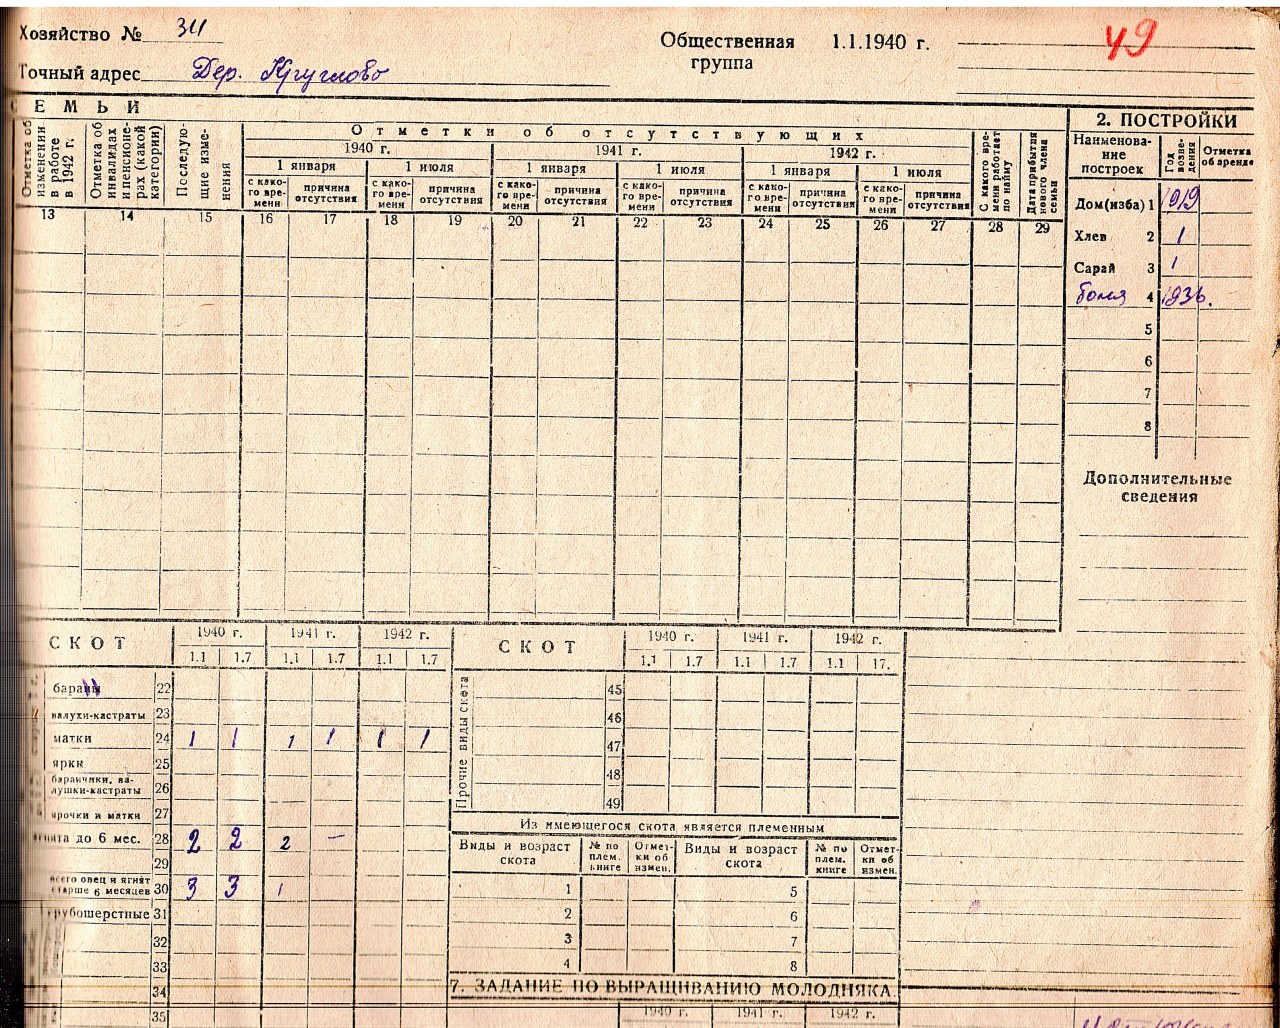 Хозяйство № 34
Общественная группа 1.1.1940 г.
49
Точный адрес Дер. Круглово
ЕМЬИ
Отметка об изменении в работе в 1942 г.
Отметка об инвалидах и пенсионерах (какой категории)
Последующие изменения
Отметки об отсутствующих
1940 г. 1941 г. 1942 г.
1 января 1 июля 1 января 1 июля 1 января 1 июля
с какого времени причина отсутствия с какого времени причина отсутствия с какого времени причина отсутствия с какого времени причина отсутствия с какого времени причина отсутствия с какого времени причина отсутствия
С какого времени работает по найму
Дата прибытия нового члена семьи
13 14 15 16 17 18 19 20 21 22 23 24 25 26 27 28 29
2. ПОСТРОЙКИ
Наименование построек Год возведения Отметка об аренде
Дом(изба) 1 1919
Хлев 2 1
Сарай 3 1
4 1936.
5
6
7
8
Дополнительные
сведения
СКОТ 1940 г. 1941 г. 1942 г.
1.1 1.7 1.1 1.7 1.1 1.7
бараны 22
валухи-кастраты 23
матки 24 1 1 1 1 1 1
ярки 25
баранчики, ва-
лушки-кастраты 26
ярочки и матки 27
ягнята до 6 мес. 28 2 2 2 —
29
всего овец и ягнят
старше 6 месяцев 30 3 3 1
грубошерстные 31
32
33
34
35
СКОТ 1940 г. 1941 г. 1942 г.
1.1 1.7 1.1 1.7 1.1 17.
Прочие виды скота
45
46
47
48
49
Из имеющегося скота является племенным
Виды и возраст скота № по плем. книге Отметки об измен. Виды и возраст скота № по плем. книге Отметки об измен.
1 5
2 6
3 7
4 8
7. ЗАДАНИЕ ПО ВЫРАЩИВАНИЮ МОЛОДНЯКА.
1940 г. 1941 г. 1942 г.